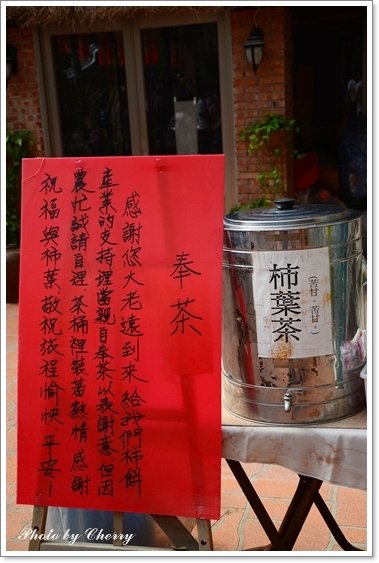 奉茶
感謝您大老遠到來給我們柿餅
產業的支持理當親自奉茶以表謝意但因
農忙誠請自遲茶桶裡裝著熱情感謝
祝福與柿葉敬祝旅程愉快平安~
柿葉茶
(苦甘。苦甘。)
Photo by Cherry